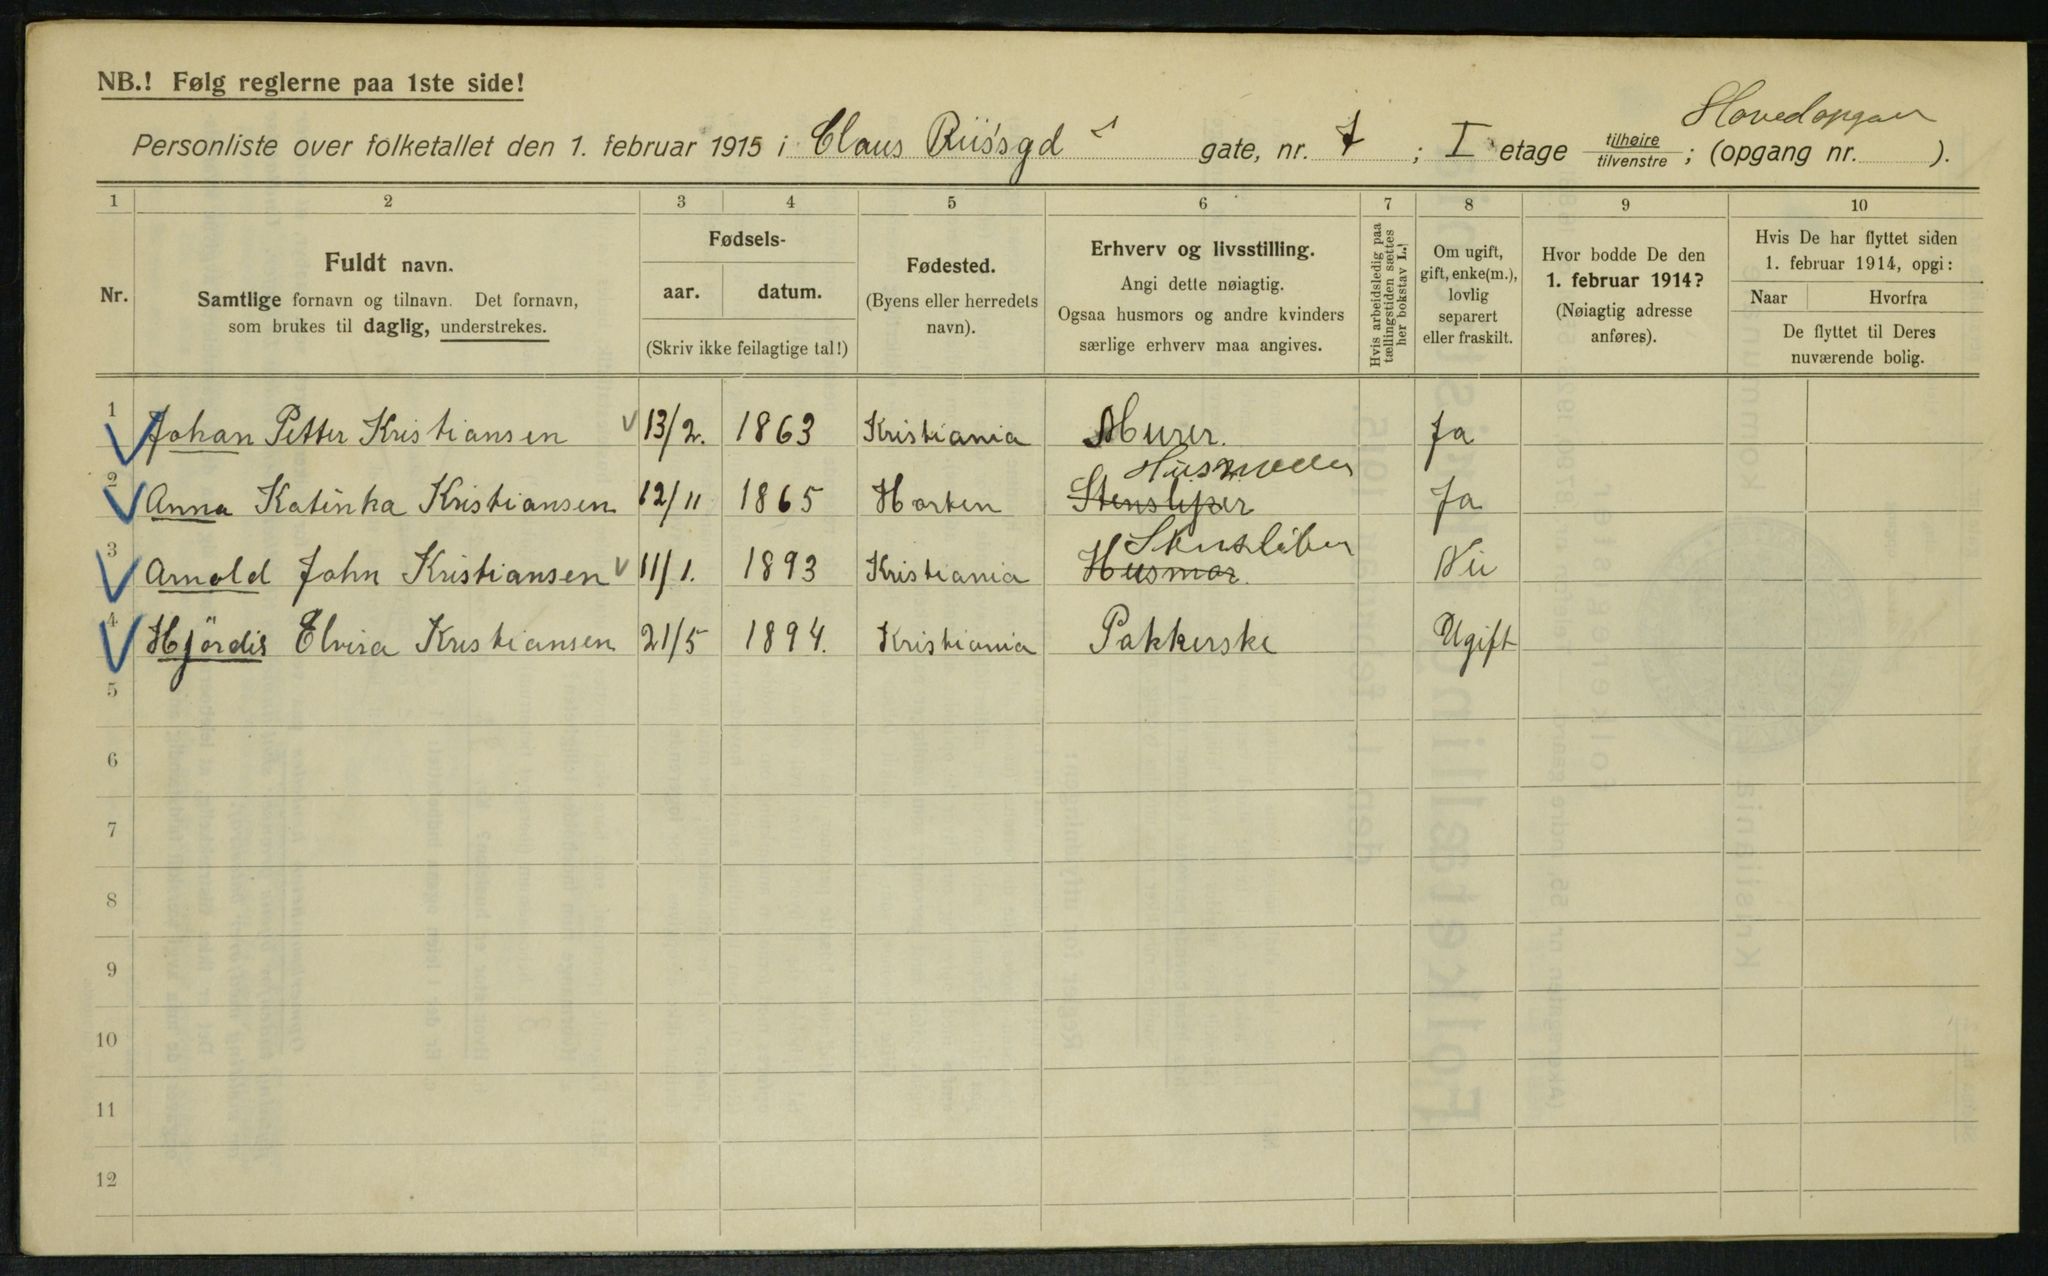 NB.! Følg reglerne paa 1ste side!
Hovedopgan
Personliste over folketallet den 1. februar 1915 i Claus Riis'sgd gate, nr. 7 ; I etage tilhøire tilvenstre ; (opgang nr. ).
1 2 3 4 5 6 7 8 9 10
Nr.
Fuldt navn.
Samtlige fornavn og tilnavn. Det fornavn,
som brukes til daglig, understrekes.
Fødsels-
aar. datum.
(Skriv ikke feilagtige tal!)
Fødested.
(Byens eller herredets
navn).
Erhverv og livsstilling.
Angi dette nøiagtig.
Ogsaa husmors og andre kvinders
særlige erhverv maa angives.
Hvis arbeidsledig paa
tællingstiden sættes
her bokstav L.!
Om ugift,
gift, enke(m.),
lovlig
separert
eller fraskilt.
Hvor bodde De den
1. februar 1914?
(Nøiagtig adresse
anføres).
Hvis De har flyttet siden
1. februar 1914, opgi:
Naar Hvorfra
De flyttet til Deres
nuværende bolig.
1 Johan Petter Kristiansen 13/2. 1863 Kristiania Murer. Ja
Husmoder
2 Anna Katinka Kristiansen 12/11 1865 Horten Stensliper Ja
3 Arnold John Kristiansen 11/1. 1893 Kristiania Husmor. Nei
4 Hjördis Elvira Kristiansen 21/5 1894. Kristiania Pakkerske Ugift
5
6
7
8
9
10
11
12